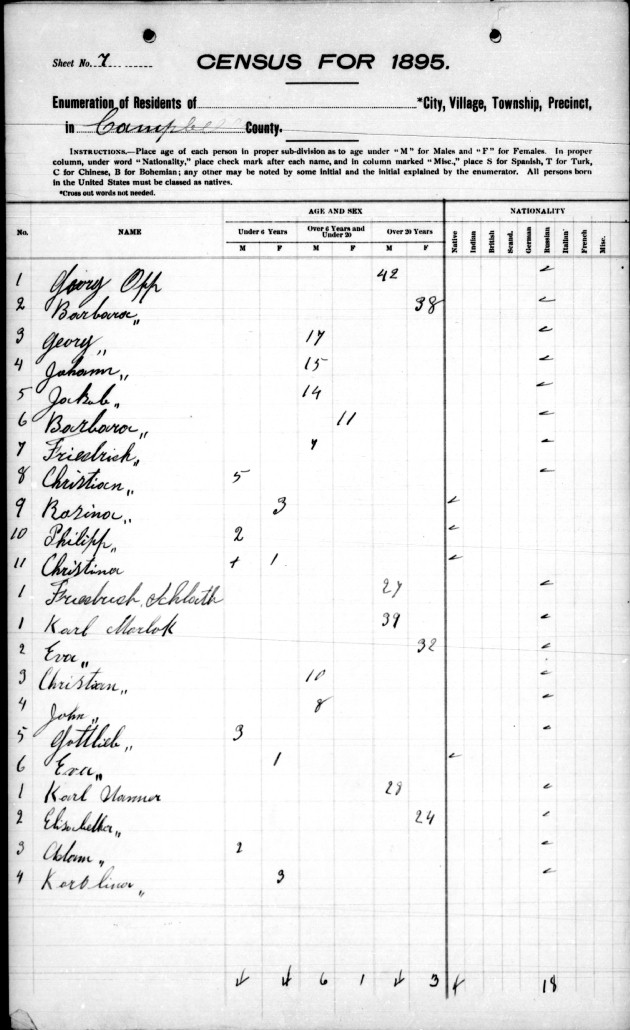 Sheet No. 7
CENSUS FOR 1895.
Enumeration of Residents of *City, Village, Township, Precinct,
in Campbell County.
INSTRUCTIONS.—Place age of each person in proper sub-division as to age under "M" for Males and "F" for Females. In proper
column, under word "Nationality," place check mark after each name, and in column marked "Misc.," place S for Spanish, T for Turk,
C for Chinese, B for Bohemian; any other may be noted by some initial and the initial explained by the enumerator. All persons born
in the United States must be classed as natives.
*Cross out words not needed.
AGE AND SEX NATIONALITY
No. NAME Under 6 Years Over 6 Years and Under 20 Over 20 Years Native Indian British Scand. German Russian Italian French Misc.
M F M F M F
1 Georg Opp 42 ✓
2 Barbara " 38 ✓
3 Georg " 17 ✓
4 Johann " 15 ✓
5 Jakob " 14 ✓
6 Barbara " 11 ✓
7 Friedrich " 7 ✓
8 Christian " 5 ✓
9 Rosina " 3 ✓
10 Philipp " 2 ✓
11 Christina 1 ✓
1 Friedrich Schlath 27 ✓
1 Karl Morlok 39 ✓
2 Eva " 32 ✓
3 Christian " 10 ✓
4 John " 8 ✓
5 Gottlieb " 3 ✓
6 Eva " 1 ✓
1 Karl 29 ✓
2 Elisabetha " 24 ✓
3 Adam " 2 ✓
4 Karolina " 3 ✓
4 6 1 3 4 18